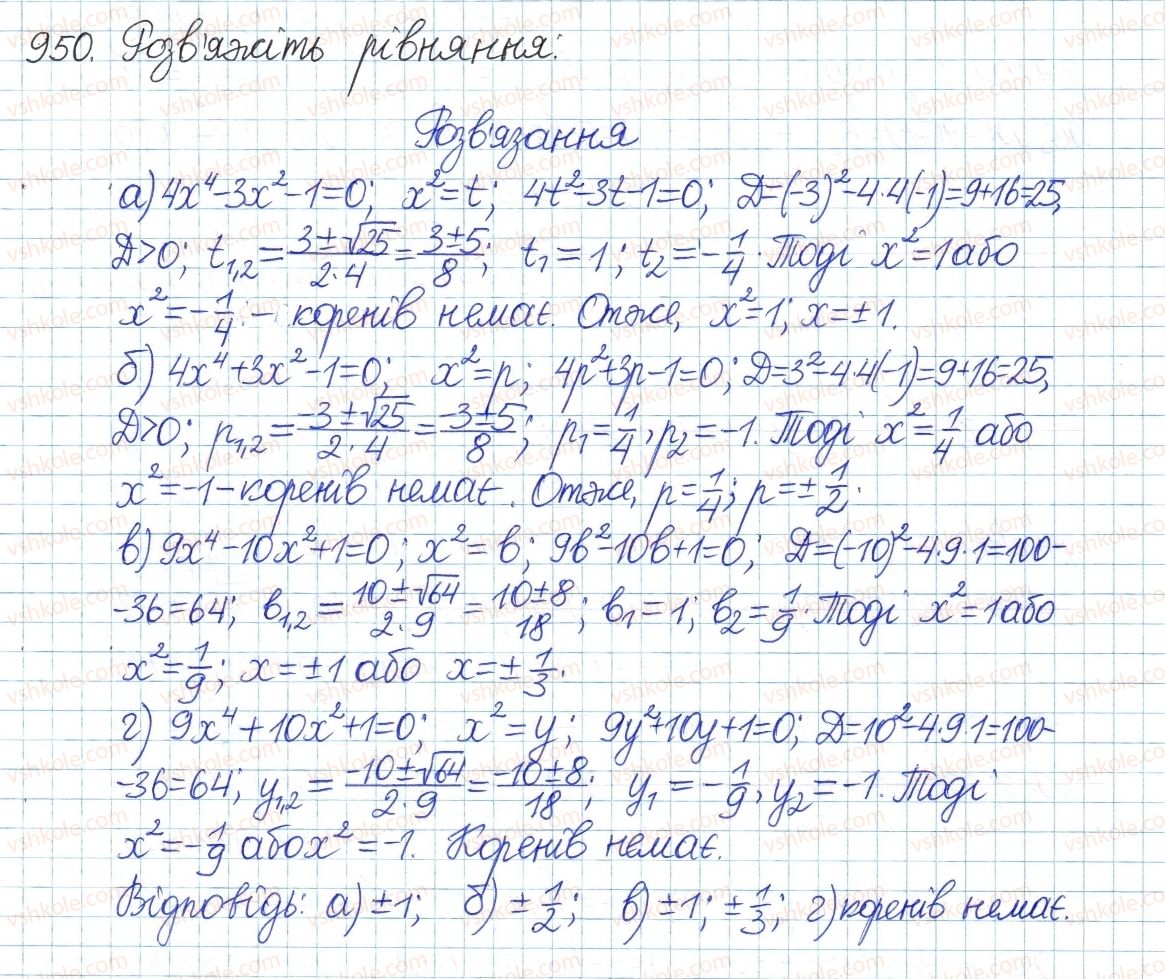 950. Розв'яжіть рівняння:
Розв'язання
а) 4x⁴-3x²-1=0; x²=t; 4t²-3t-1=0; Д=(-3)²-4·4(-1)=9+16=25,
Д>0; t₁,₂=(3±√25)/(2·4)=(3±5)/8; t₁=1; t₂=-1/4. Тоді x²=1 або
x²=-1/4. - коренів немає. Отже, x²=1; x=±1.
б) 4x⁴+3x²-1=0; x²=p; 4p²+3p-1=0; Д=3²-4·4(-1)=9+16=25,
Д>0; p₁,₂=(-3±√25)/(2·4)=(-3±5)/8; p₁=1/4, p₂=-1. Тоді x²=1/4 або
x²=-1-коренів немає. Отже, p=1/4; p=±1/2.
в) 9x⁴-10x²+1=0; x²=в; 9в²-10в+1=0; Д=(-10)²-4·9·1=100-
-36=64; в₁,₂=(10±√64)/(2·9)=(10±8)/18; в₁=1; в₂=1/9. Тоді x²=1 або
x²=1/9; x=±1 або x=±1/3.
г) 9x⁴+10x²+1=0; x²=y; 9y²+10y+1=0; Д=10²-4·9·1=100-
-36=64; y₁,₂=(-10±√64)/(2·9)=(-10±8)/18; y₁=-1/9, y₂=-1. Тоді
x²=-1/9 або x²=-1. Коренів немає.
Відповідь: а) ±1; б) ±1/2; в) ±1; ±1/3; г) коренів немає.